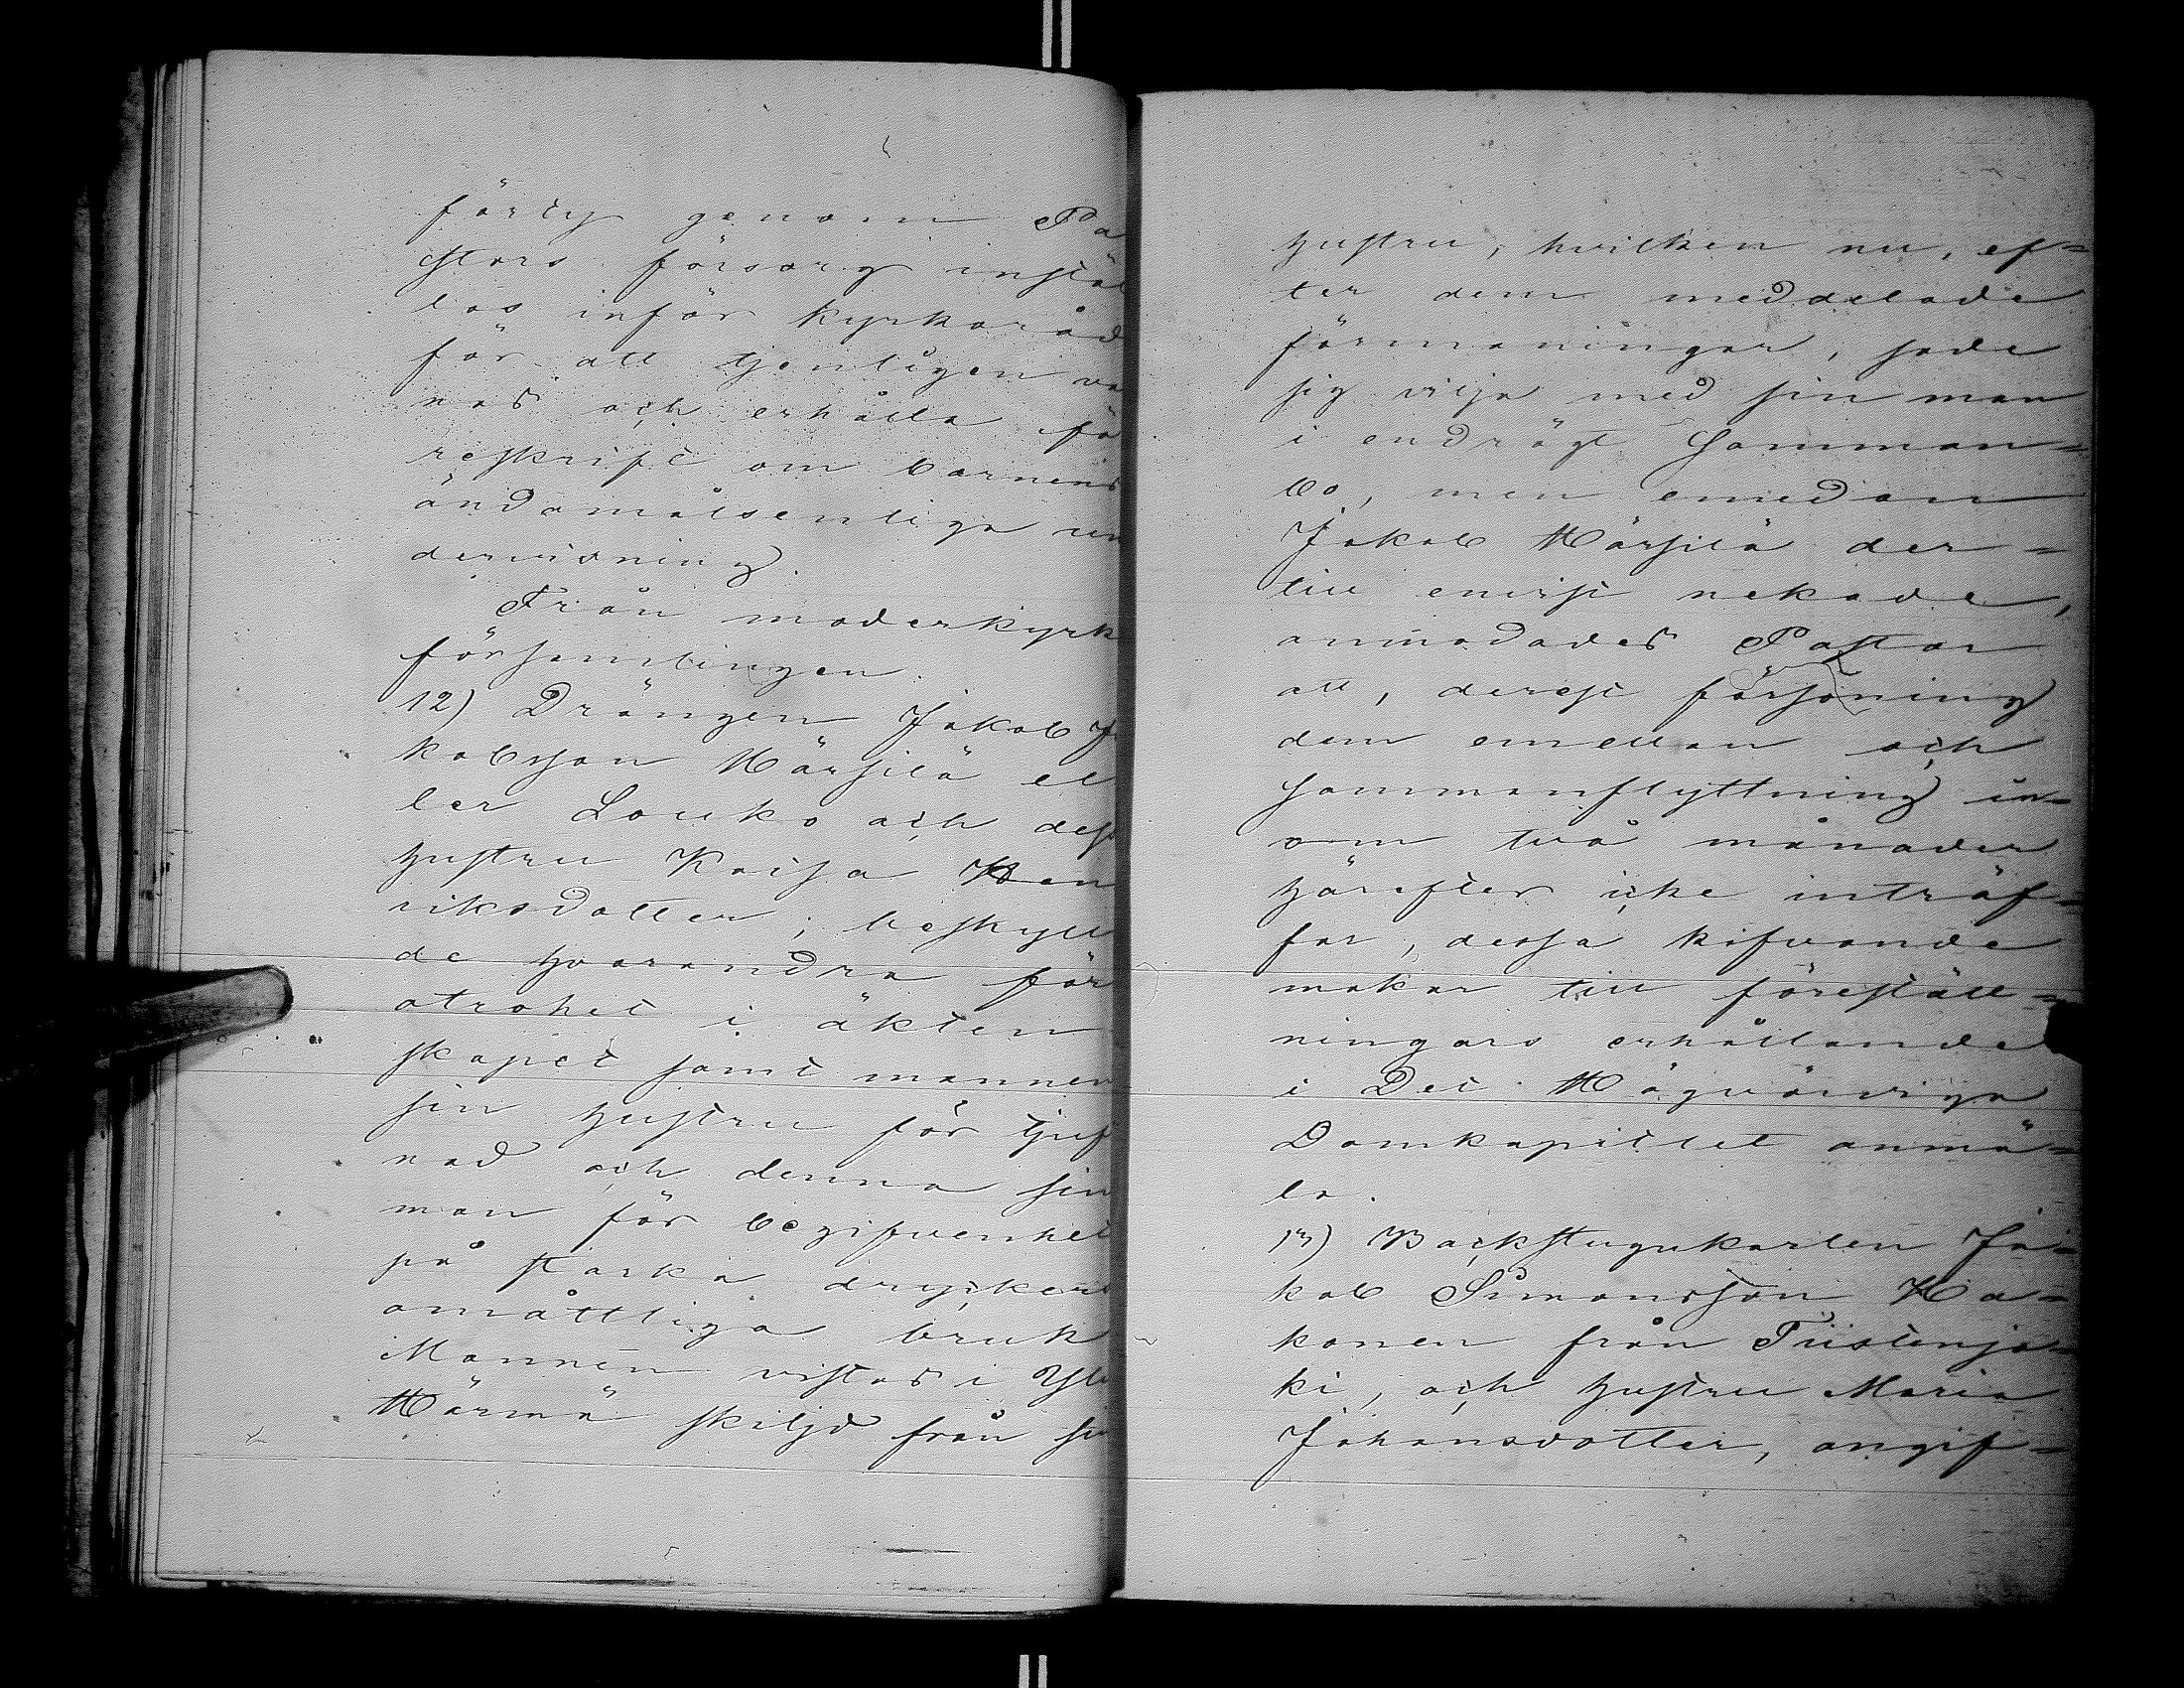 förty genom Pa
stors försorg instäl
las inför kyrkoråd
för att tjenligen var
nas och erhålla fö
reskrift om barnens
ändamålsenliga un
dervisning.
Från moderkyrk
församlingen.
12) Drängen Jakob Ja
kobsson Härsilä el
ler Louko och dess
hustru Kaisa Hen
riksdotter; beskyll
de hvarandra för
otrohet i äkten
skapet samt mannen
sin hustru för tjuf
nad och denna sin
man för begifvenhet
på starka dryckers
omåttliga bruk
Mannen vistas i Yli
Härmä skiljd från sin
hustru, hvilken nu, ef=
ter dem meddelade
förmaningar, sade
sig vilja med sin man
i endrägt samman=
bo, men emedan
Jakob Härsilä der=
till envist nekade,
anmodades Pastor
att, derest försoning
dem emellan och
sammanflyttning in=
om två månader
härefter icke inträf=
far, dessa kifvande
makar till föreställ=
ningars erhållande
i Det Högvördiga
Domkapitlet anmä=
la.
13) Backstugukarlen Ja=
kob Simonsson Ha=
konen från Tiistenjo=
ki, och hustru Maria
Johansdotter, angif=